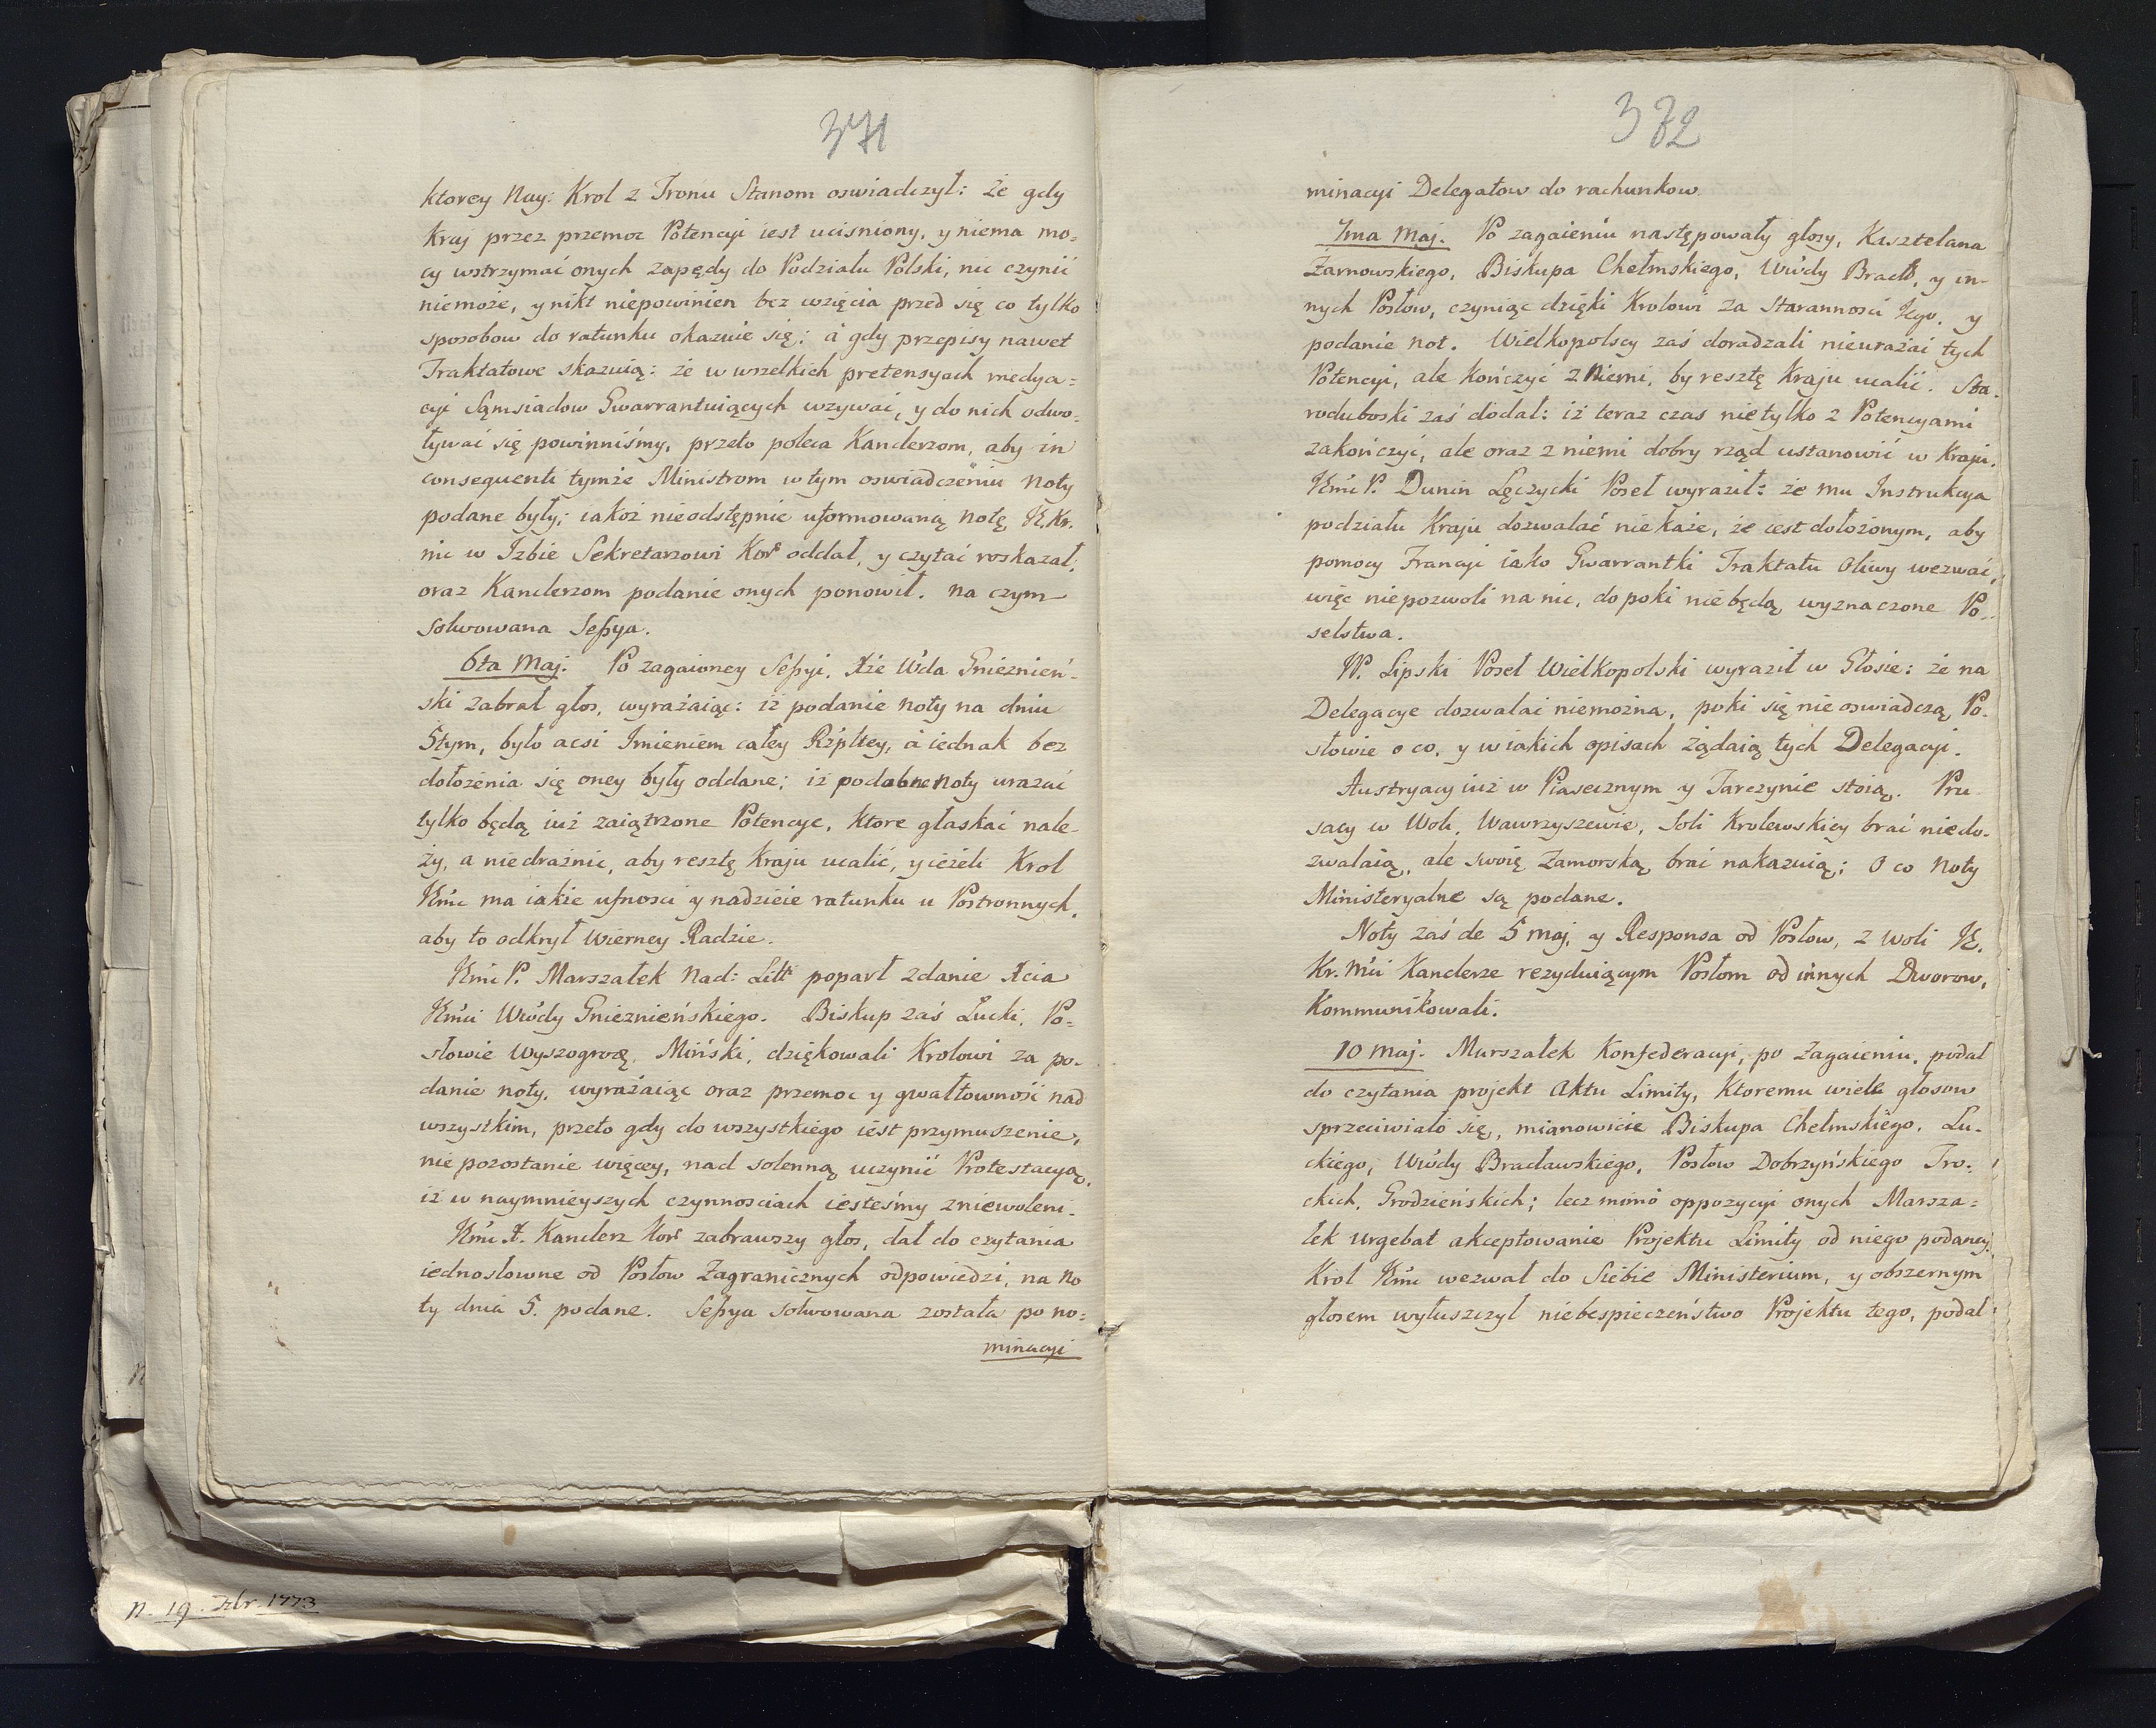 371
ktorey Nay: Krol z Tronu Stanom oswiadczył: że gdy
Kray przez przemoc Potencyi iest ucisniony, y niema mo=
cy wstrzymać onych zapędy do Podziału Polski, nic czynić
niemoże, y nikt niepowinien bez wzięcia przed się co tylko
sposobow do ratunku okazuie się; à gdy przepisy nawet
Traktatowe skazuią: że w wszelkich pretensyach medya=
cyi Sąmsiadow Gwarrantuiących wzywać, y do nich odwo-
ływać się powinniśmy, przeto poleca Kanclerzom, aby in
consequenti tymże Ministrom w tym oswiadczeniu Noty
podane były; iakoż nieodstępnie uformowaną notę JK. Kr.
nic w Izbie Sekretarzowi Kor oddał, y czytać roskazał,
oraz Kanclerzom podanie onych ponowił. na czym
Solwowana Seszya.
6ta Maj. Po zagaioney Seszyi, Xże Wda Gnieznień-
ski zabrał głos, wyrażaiąc: iż podanie noty na dniu
5tym, było acsi Imieniem całey Rzpltey, à iednak bez
dołożenia się oney były oddane; iż podobne Noty urażać
tylko będą iuż zaiątrzone Potencye, które głaskać nale-
ży, a niedrażnić, aby resztę Kraju ucalić, y ieżeli Krol
JKmć ma iakie ufnosci y nadzieie ratunku u Postronnych,
aby to odkrył Wierney Radzie.
JKmć P. Marszałek Nad: Litt popart zdanie Xcia
JKmci Wwody Gnieznieńskiego. Biskup zaś Łucki, Po=
słowie Wyszogrodz, Miński, dziękowali Krolowi za po-
danie noty, wyrażaiąc oraz przemoc y gwałtowność nad
wszystkim, przeto gdy do wszystkiego iest przymuszenie,
nie pozostanie więcey, nad solenną uczynić Protestacyą,
iż w naymnieyszych czynnosciach iesteśmy zniewoleni.
JKmć X. Kanclerz Kor zabrawszy głos, dał do czytania
iednosłowne od Posłow Zagranicznych odpowiedzi, na No
ty dnia 5. podane. Seszya solwowana została po no=
minacyi
N. 19. Xbr. 1773
372
minacyi Delegatow do rachunkow.
7ma Maj. Po zagaieniu następowały głosy, Kasztelana
Żarnowskiego, Biskupa Chełmskiego, Wwdy Bracł, y in-
nych Posłow, czyniąc dzięki Krolowi za Starannosci Jego, y
podanie not. Wielkopolscy zaś doradzali nieurażać tych
Potencyi, ale Kończyć z Niemi, by resztę Kraju ucalić. Sta-
roduboski zaś dodał: iż teraz czas nietylko z Potencyami
zakończyć, ale oraz z niemi dobry rząd ustanowić w Kraju.
JKmć P. Dunin Łęczycki Poseł wyraził: że mu Instrukcya
podziału Kraju dozwalać nie każe, że iest dołożonym, aby
pomocy Francyi iako Gwarrantki Traktatu Oliwy wezwać,
więc niepozwoli na nic, do poki nie będą wyznaczone Po-
selstwa.
JP. Lipski Poseł Wielkopolski wyraził w Głosie: że na
Delegacye dozwalać niemożna, poki się nie oswiadczą Po-
słowie o co, y w iakich opisach żądaią tych Delegacyi.
Austryacy iuż w Piasecznym y Tarczynie stoią. Pru
sacy w Woli, Wawrzyszewie, Soli Krolewskiey brać niedo-
zwalaią, ale swoię Zamorską brać nakazuią; O co Noty
Ministeryalne są podane.
Noty zaś de 5 Maj, y Responsa od Posłow, z woli JK.
Kr. Mci Kanclerze rezyduiącym Posłom od innych Dworow,
Kommunikowali.
10 Maj. Marszałek Konfederacyi, po Zagaieniu, podał
do czytania projekt Aktu Limity, Ktoremu wiele głosow
sprzeciwiało się, mianowicie Biskupa Chełmskiego, Łu-
ckiego, Wwdy Bracławskiego, Posłow Dobrzyńskiego Tro-
ckich, Grodzieńskich; lecz mimo oppozycyi onych Marsza=
łek urgebat akceptowanie Projektu Limity od niego podaney.
Krol JKmć wezwał do Siebie Ministerium, y obszernym
głosem wyłuszczył niebespieczeństwo Projektu tego, podał